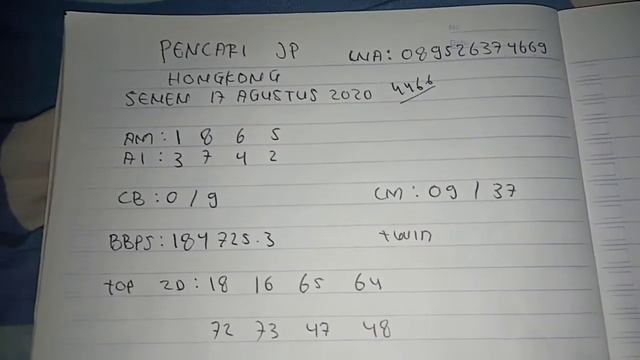 PENCARI JP WA: 089526374669
HONGKONG
SENEN 17 AGUSTUS 2020 4466
AM: 1 8 6 5
AI: 3 7 4 2
CB: 0 / 9 CM: 09 / 37
BBPS: 184725.3 +WIN
TOP 2D: 18 16 65 64
72 73 47 48